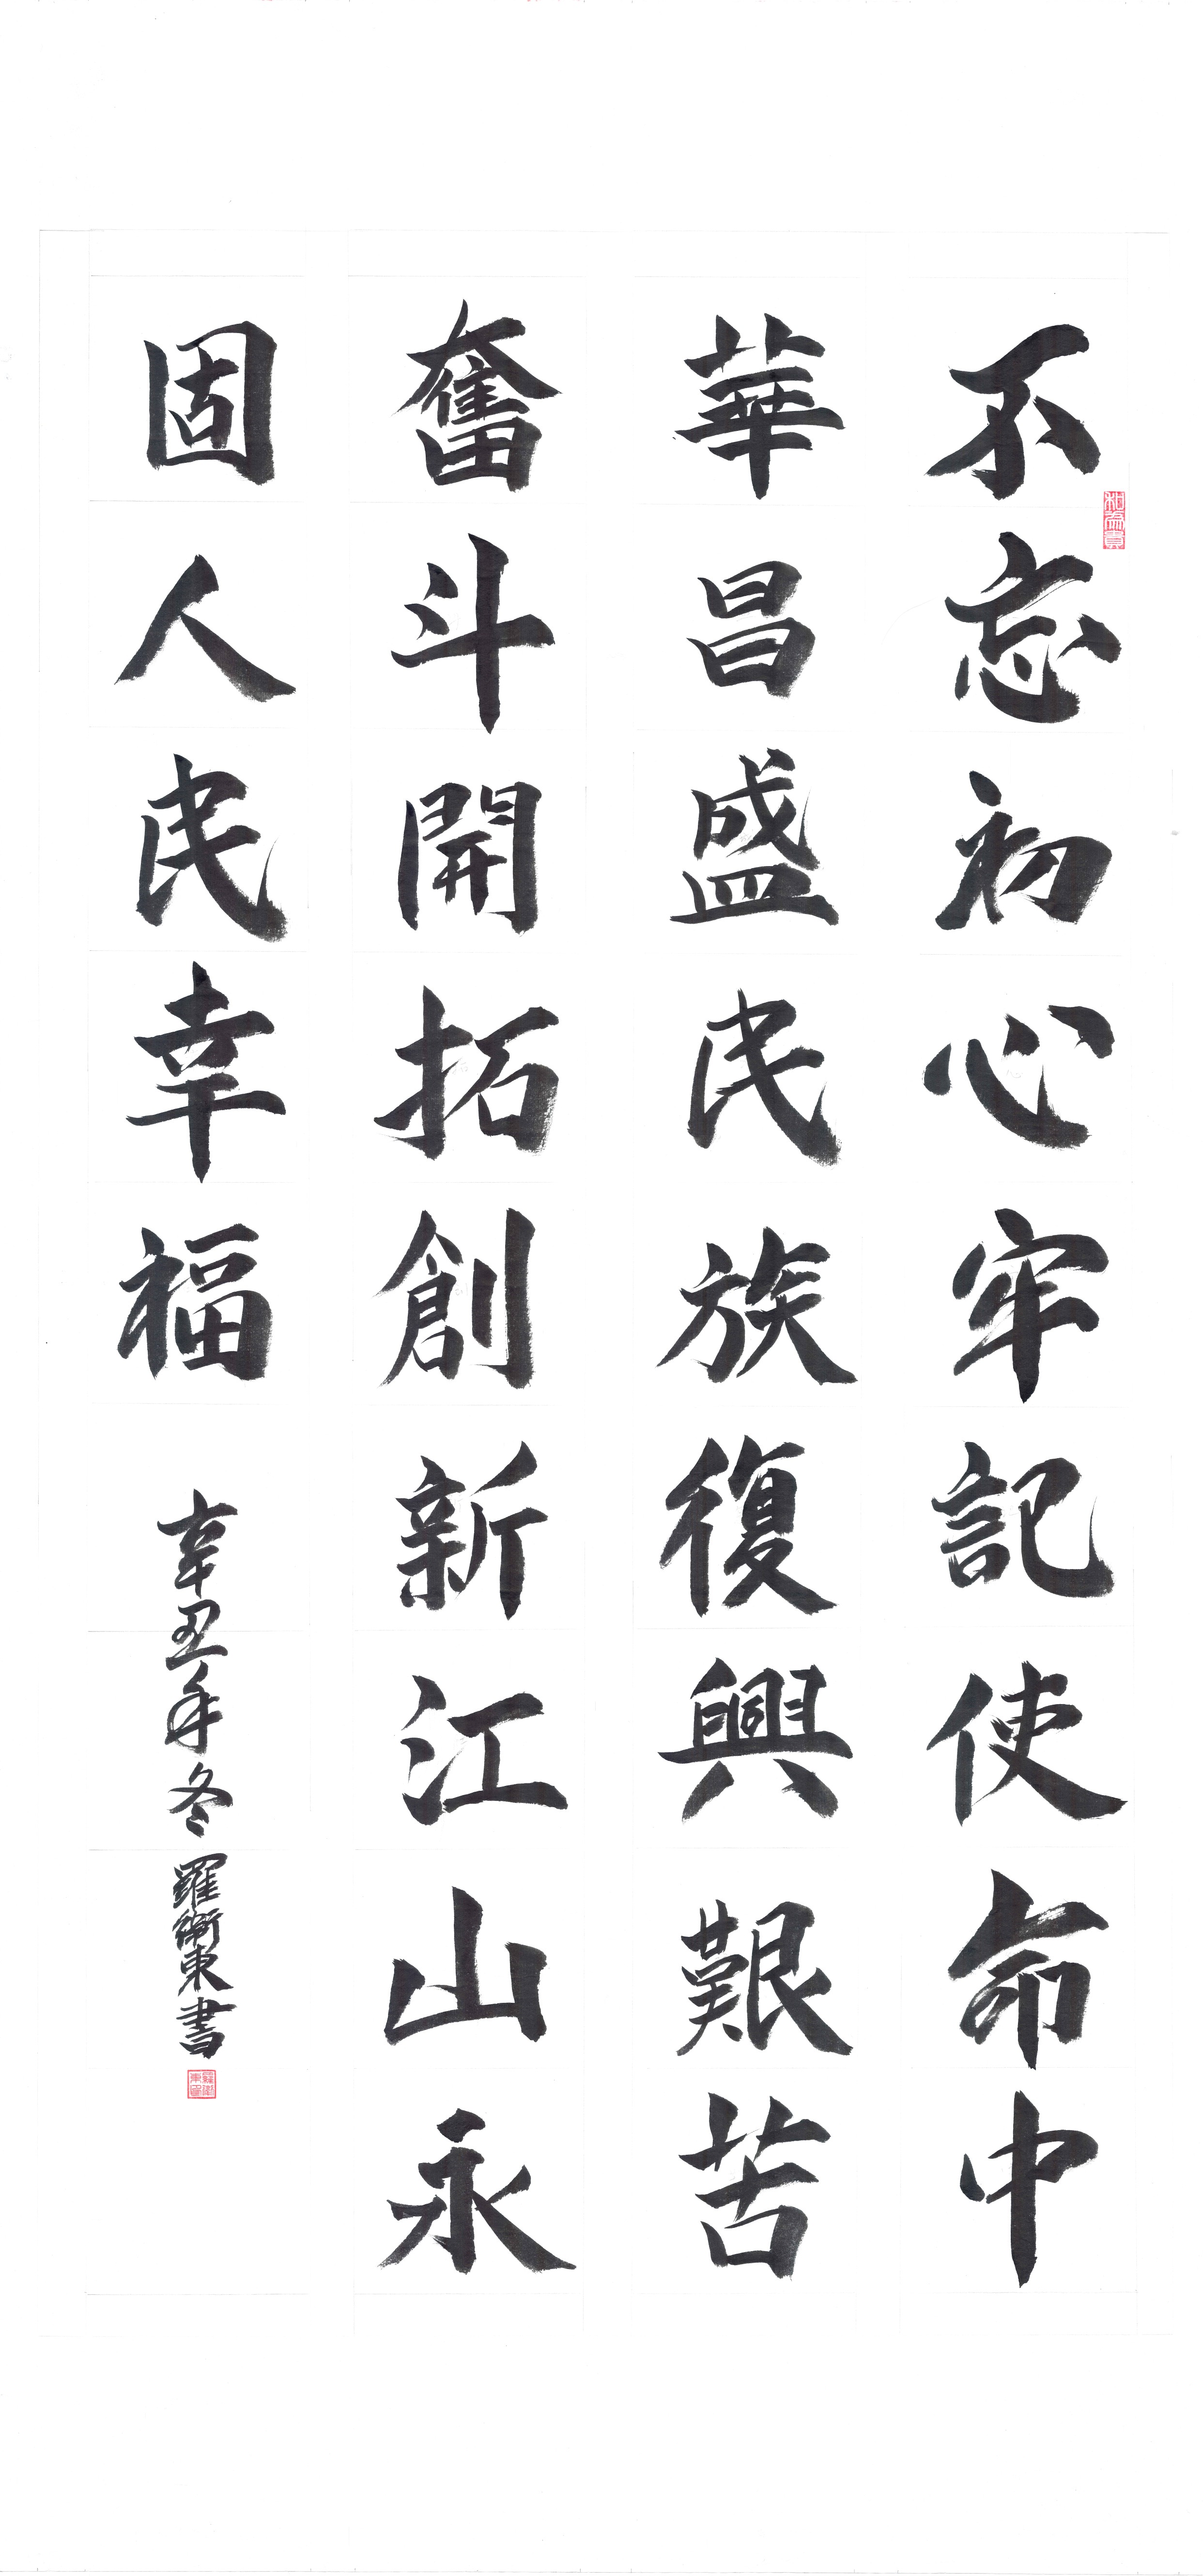 不忘初心牢記使命中
華昌盛民族復興艱苦
奮斗開拓創新江山永
固人民幸福
辛丑年冬羅衛東書